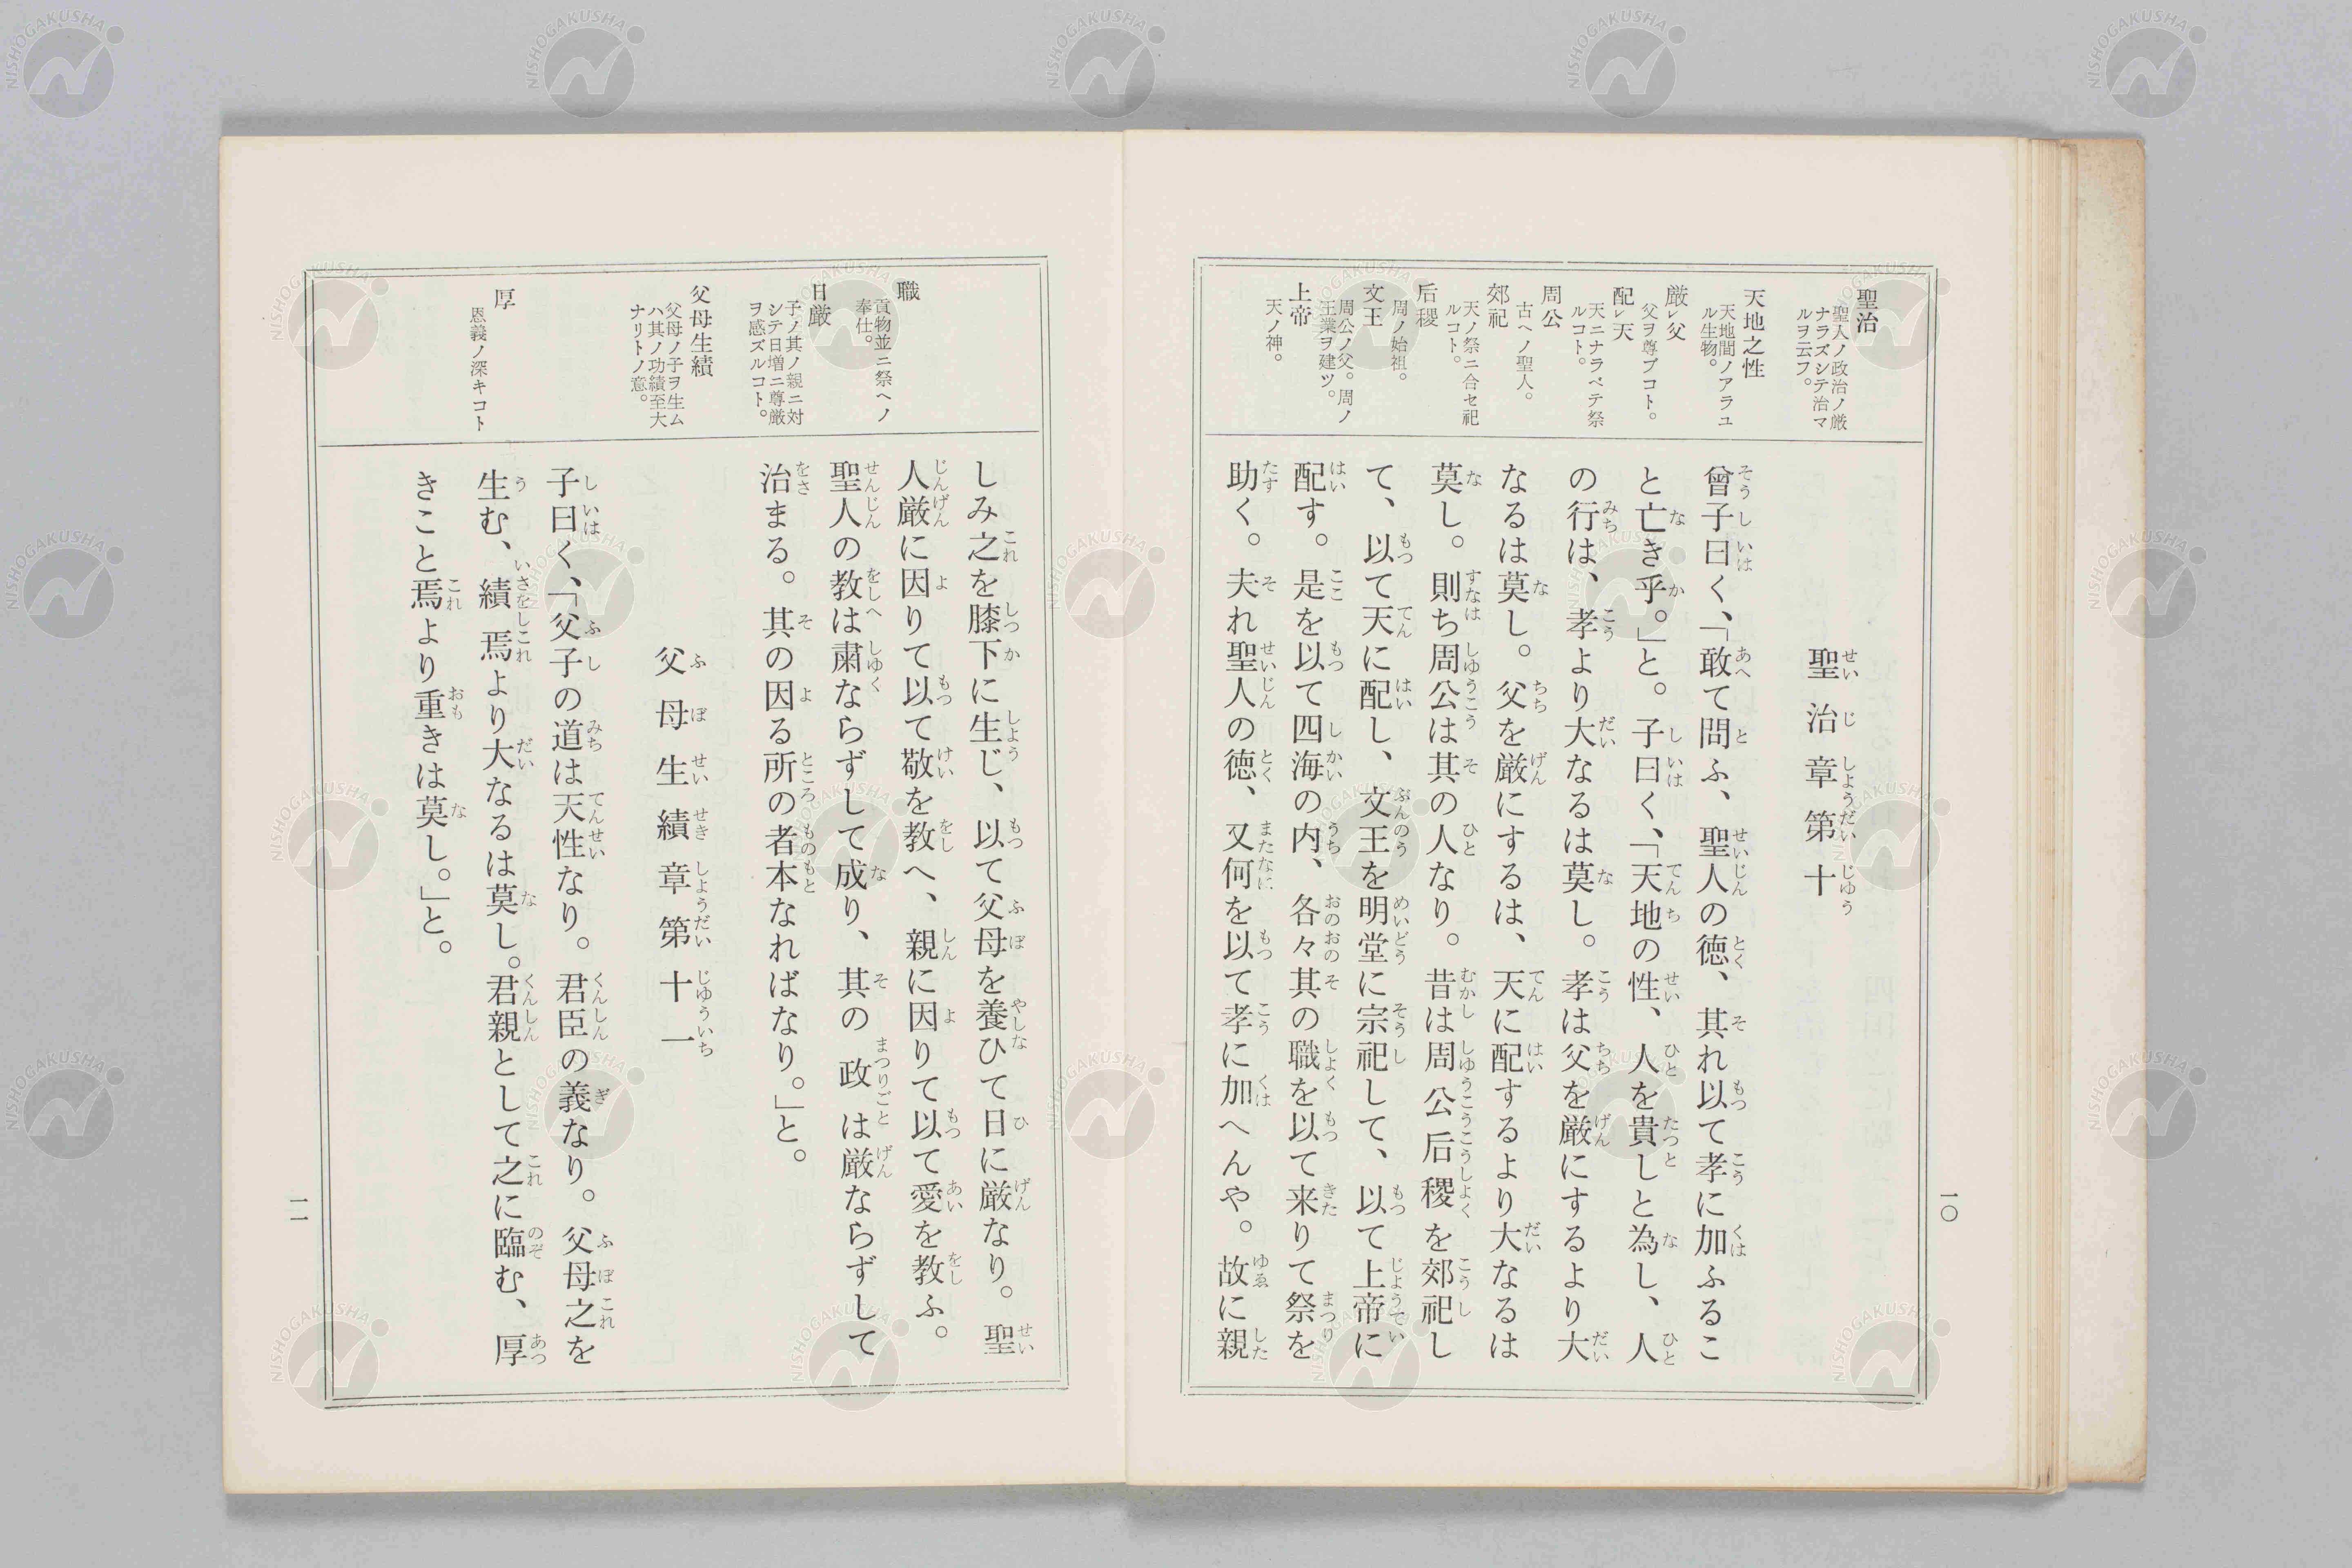 聖治
聖人ノ政治ノ厳
ナラズシテ治マ
ルヲ云フ。
天地之性
天地間ノアラユ
ル生物。
厳レ父
父ヲ尊ブコト。
配レ天
天ニナラベテ祭
ルコト。
周公
古ヘノ聖人。
郊祀
天ノ祭ニ合セ祀
ルコト。
后稷
周ノ始祖。
文王
周公ノ父。周ノ
王業ヲ建ツ。
上帝
天ノ神。
聖治章第十
曾子曰く、「敢て問ふ、聖人の徳、其れ以て孝に加ふるこ
と亡き乎。」と。子曰く、「天地の性、人を貴しと為し、人
の行は、孝より大なるは莫し。孝は父を厳にするより大
なるは莫し。父を厳にするは、天に配するより大なるは
莫し。則ち周公は其の人なり。昔は周公后稷を郊祀し
て、以て天に配し、文王を明堂に宗祀して、以て上帝に
配す。是を以て四海の内、各々其の職を以て来りて祭を
助く。夫れ聖人の徳、又何を以て孝に加へんや。故に親
一〇
職
貢物並ニ祭ヘノ
奉仕。
日厳
子ノ其ノ親ニ対
シテ日増ニ尊厳
ヲ感ズルコト。
父母生績
父母ノ子ヲ生ム
ハ其ノ功績至大
ナリトノ意。
厚
恩義ノ深キコト
しみ之を膝下に生じ、以て父母を養ひて日に厳なり。聖
人厳に因りて以て敬を教へ、親に因りて以て愛を教ふ。
聖人の教は粛ならずして成り、其の政は厳ならずして
治まる。其の因る所の者本なればなり。」と。
父母生績章第十一
子曰く、「父子の道は天性なり。君臣の義なり。父母之を
生む、績焉より大なるは莫し。君親として之に臨む、厚
きこと焉より重きは莫し。」と。
一一